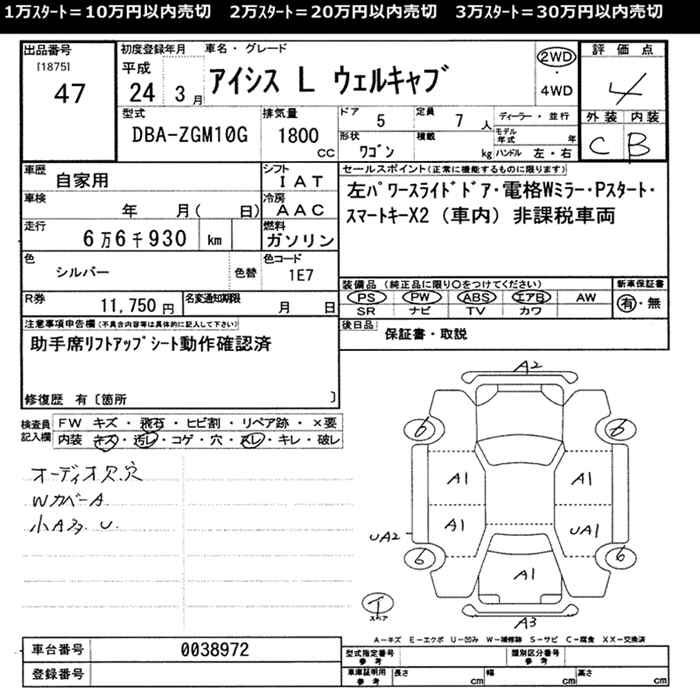 1万ｽﾀｰﾄ＝10万円以内売切　2万ｽﾀｰﾄ＝20万円以内売切　3万ｽﾀｰﾄ＝30万円以内売切
出品番号
[1875]
47
初度登録年月
平成
24 3 月
車名・グレード
アイシス L ウェルキャブ
2WD
4WD
評価点
4
外装 内装
C B
型式
DBA-ZGM10G
排気量
1800
CC
ドア 5
定員 7 人
ディーラー・並行
形状 ﾜｺﾞﾝ
積載 kg
モデル年式 年
ハンドル 左・右
車歴 自家用
シフト IAT
車検 年 月( 日)
冷房 AAC
走行 6万6千930 km
燃料 ガソリン
色 シルバー
色替
色コード 1E7
R券 11,750 円
名変通知期限 月 日
セールスポイント(正常に機能するものに限ります)
左ﾊﾟﾜｰｽﾗｲﾄﾞﾄﾞｱ・電格Wミラー・Pスタート・
スマートキーX2（車内）非課税車両
装備品（純正品に限り○をつけてください）
PS PW ABS エアB AW
SR ナビ TV カワ
新車保証書
有・無
後日品 保証書・取説
注意事項申告欄(不具合内容等は具体的に記入して下さい)
助手席ﾘﾌﾄｱｯﾌﾟｼｰﾄ動作確認済
修復歴 有〔箇所 〕
検査員記入欄
FW キズ・飛石・ヒビ割・リペア跡・×要
内装 キズ・汚レ・コゲ・穴・スレ・キレ・破レ
オーディオ欠.穴
WカバーA
小A多 U.
A2
6 6
A1 A1
A1 UA1
UA2
6 6
A1
A3
スペア
A－キズ E－エクボ U－凹み W－補修跡 S－サビ C－腐食 XX－交換済
車台番号 0038972
登録番号
型式指定番号 参考
類別区分番号 参考
車庫証明用 参考
長さ cm 幅 cm 高さ cm